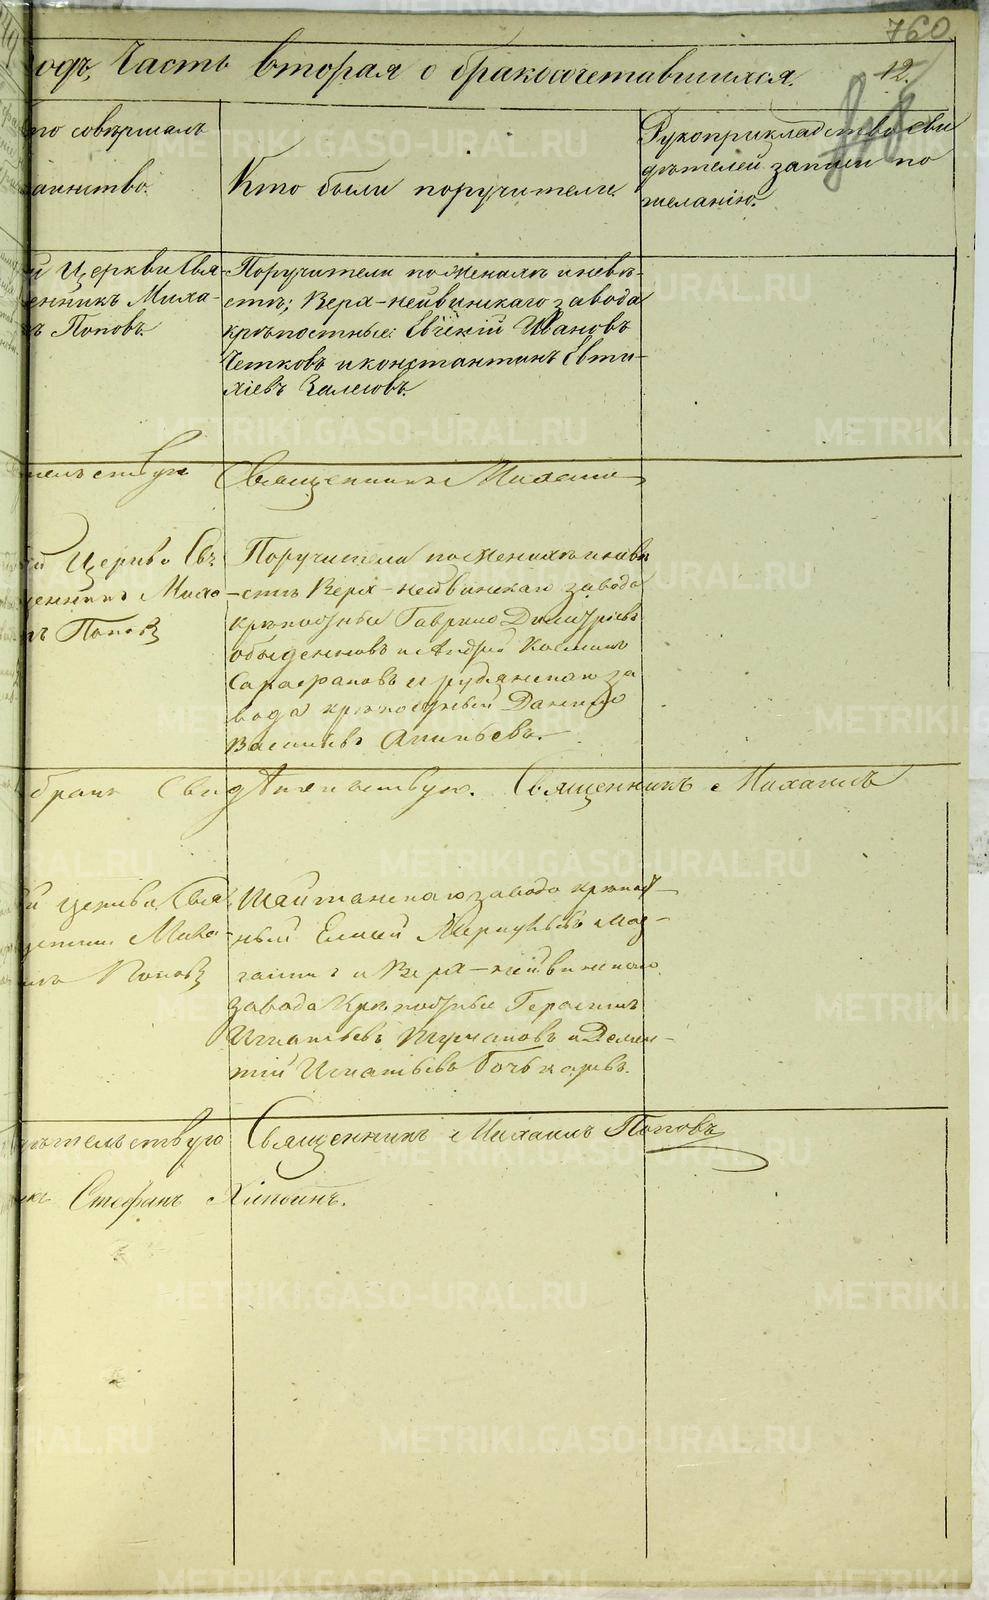 760
одъ, Часть вторая о бракосочетавшихся.
12.
то совершалъ
аинство.
Кто были поручители.
Рукоприкладство сви
дѣтелей записи по
желанію.
й Церкви Свя-
енникъ Миха-
ъ Поповъ.
Поручители по женихѣ и невѣ-
стѣ; Верх-нейвинскаго завода
крѣпостные: Ивановъ
Четковъ и Константинъ Евти-
хіевъ Залесовъ.
тельствую Священникъ Михаилъ
й Церкви Свя
щенникъ Миха
лъ Поповъ
Поручители по женихѣ и невѣ
стѣ Верх-нейвинскаго завода
крѣпостные Гаврило Димитріевъ
Обыденновъ и Андрей Козминъ
Сарафановъ и рудянскаго за
вода крѣпостный Данило
Василіевъ
бракъ Свидѣтельствую. Священникъ Михаилъ
й церкви Свя
щенникъ Миха-
илъ Поповъ
Шайтанскаго завода крѣпост-
ный Елисей
и Верх-нейвинскаго
завода Крѣпостные Герасимъ
Игнатьевъ и Демен-
тій Игнатьевъ Бочькаревъ.
дѣтельствую Священникъ Михаилъ Поповъ
Стефанъ Хіонинъ.
METRIKI.GASO-URAL.RU